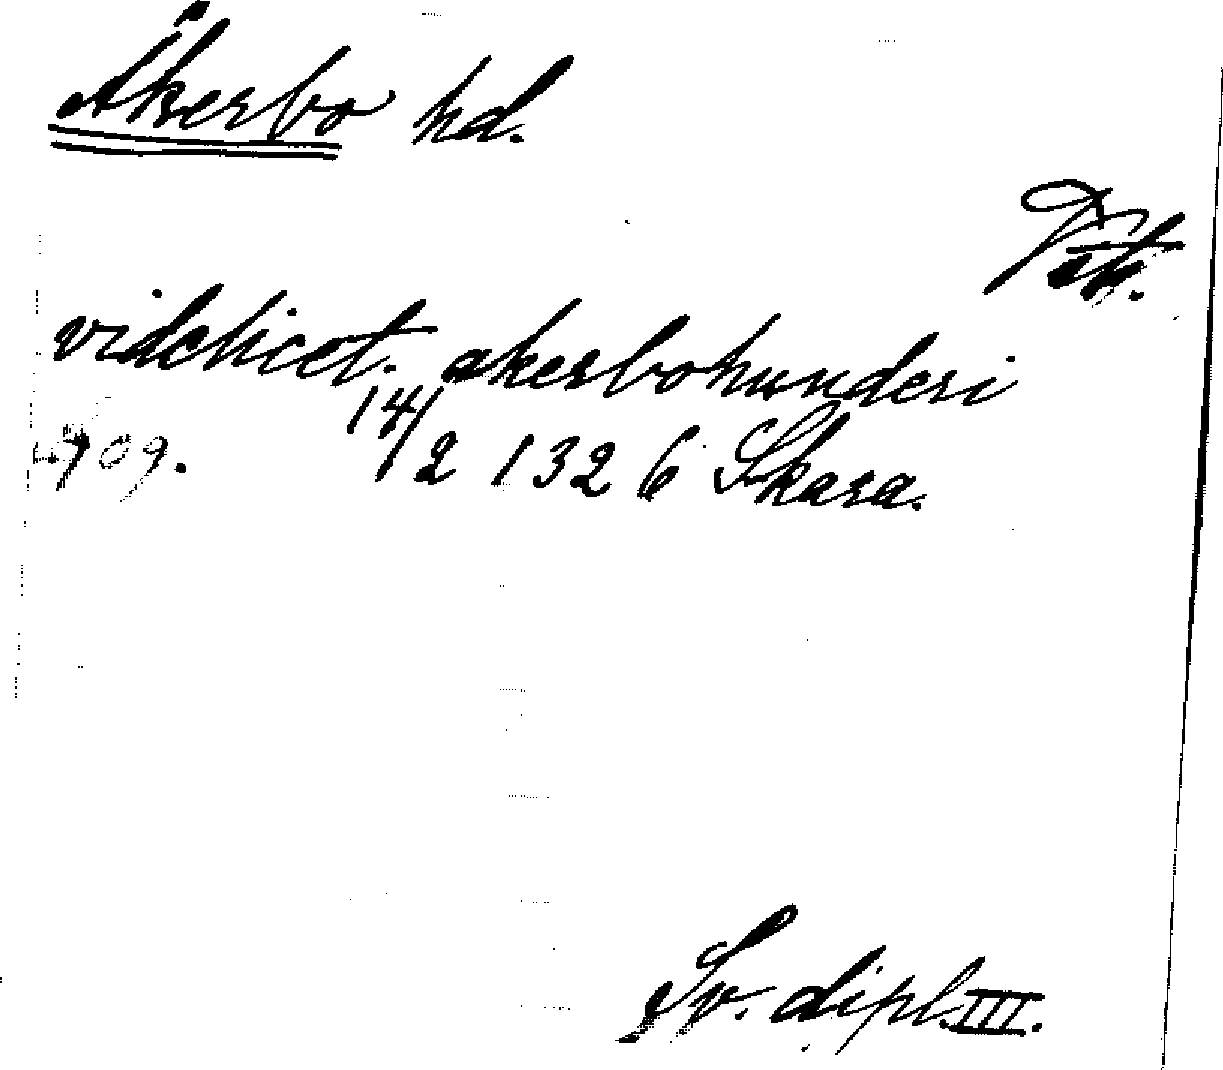 Åkerbo hd.
Vstm.
videlicet. akerbohunderi
709. 14/2 1326 Skara.
Sv. dipl. III.